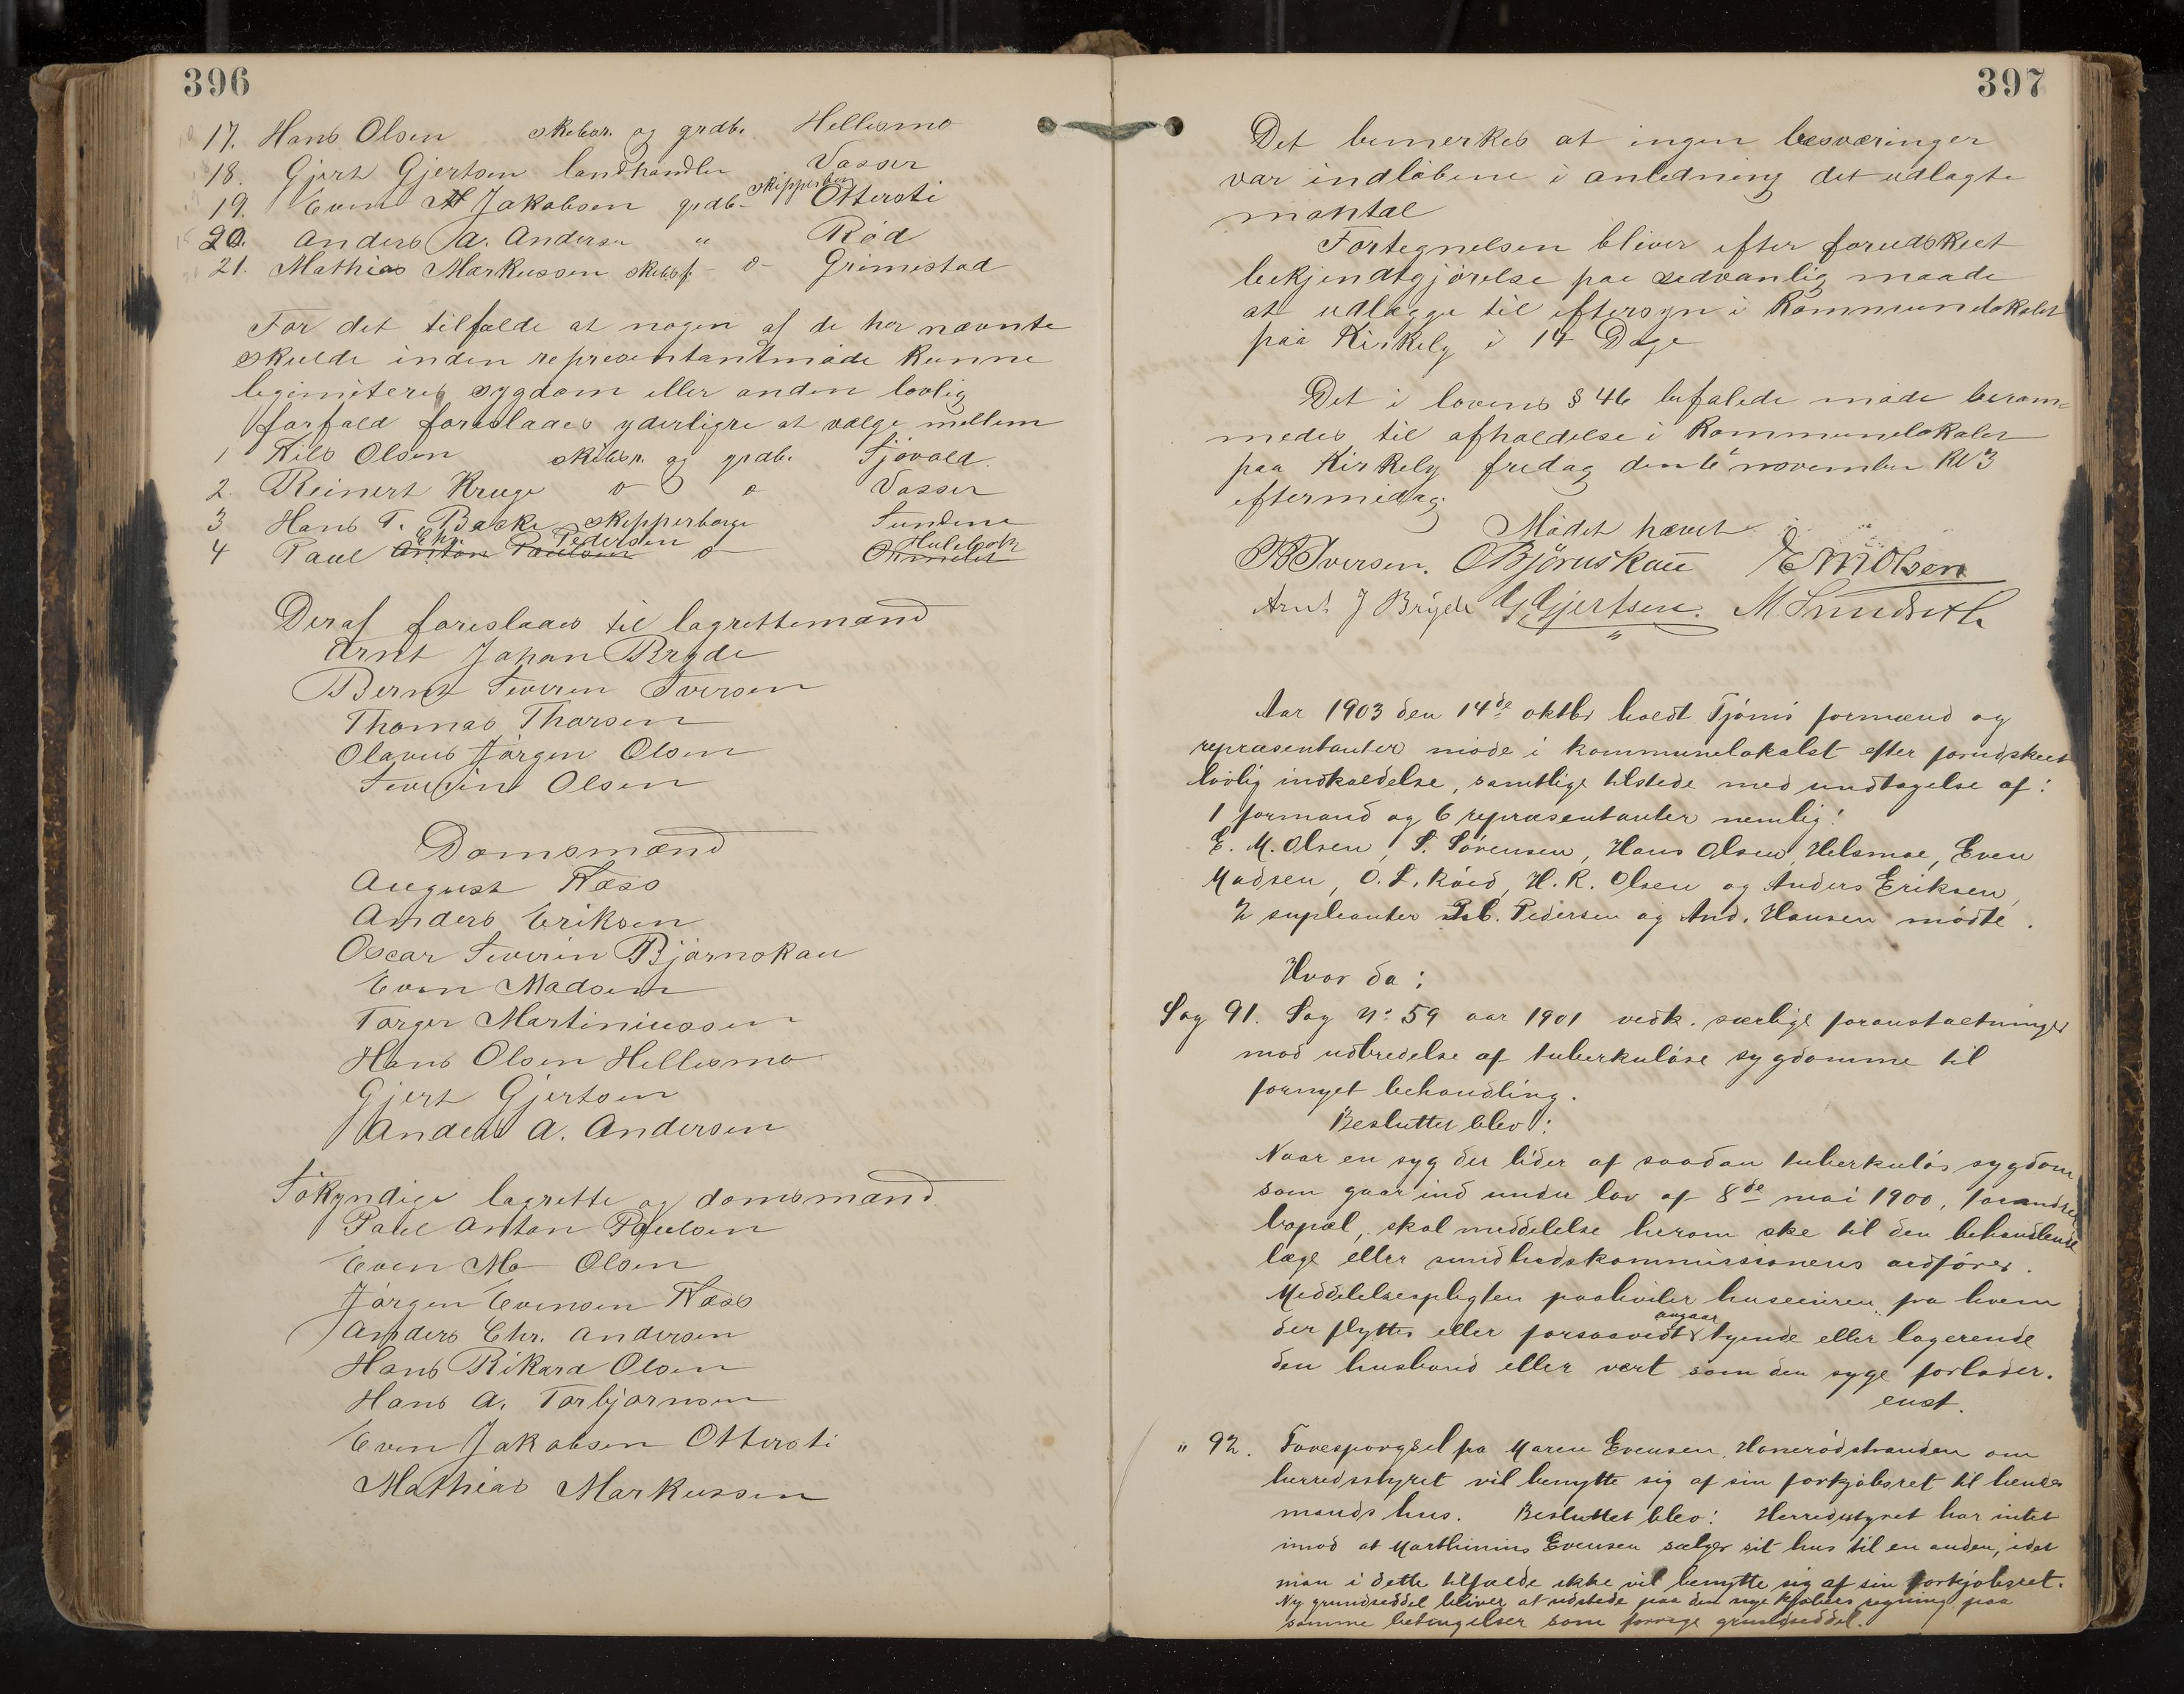 396
17. Hans Olsen skibsr. og grdb. Hellesmo
18. Gjert Gjertsen landhandler Vasser
19. Even Jakobsen grdb. skipperborg Ottersti
20. Anders A. Andersen " Röd
21. Mathias Markussen skibsf. o- Grimestad
For det tilfælde at nogen af de her nævnte
skulde inden representantmöde kunne
legimiteres sygdom eller anden lovlig
forfald foreslaaes yderligre at vælge mellem
1 Nils Olsen skibsr. og grdb. Sjövold
2. Reinert Kruge o o Vasser
3 Hans T. Bakke skipperborge Sundene
4 Paul Chr. Pedersen o Hulebak
Deraf foreslaaes til lagrettemænd
Arnt Johan Bryde
Bernt Severin Iversen
Thomas Thorsen
Olavus Jörgen Olsen
Severin Olsen
Domsmænd
August Næss
Anders Eriksen
Oscar Severin Björnskau
Even Madsen
Torger Martiniussen
Hans Olsen Hellesmo
Gjert Gjertsen
Anders A. Andersen
Sökyndige lagrette og domsmænd
Paul Anton Paulsen
Even M Olsen
Jörgen Evensen Næss
Anders Chr. Andersen
Hans Rikard Olsen
Hans A. Torbjornsen
Even Jakobsen Ottersti
Mathias Markussen
397
Det bemerkes at ingen besværinger
var indlöbene i anledning det udlagte
mantal
Fortegnelsen bliver efter forudskeet
bekjendtgjörelse paa sedvanlig maade
at udlægge til eftersyn i Kommunelokalet
paa Kirkely i 14 Dage
Det i lovens § 46 befalede möde beram=
medes til afholdelse i Kommunelokalet
paa Kirkely fredag den 6' november Kl 3
eftermidag.
Mödet hævet
B S Iversen. O Björnskau E M Olsen
Arnt J Bryde G. Gjertsen. M. Smidseth
Aar 1903 den 14de oktbr holdt Tjömö formænd og
repræsentanter möde i kommunelokalet efter forudskeet
lovlig indkaldelse, samtlige tilstede med undtagelse af:
1 formand og 6 repræsentanter nemlig:
E. M. Olsen, S. Sörensen, Hans Olsen Helsmoe, Even
Madsen, O. L. Röed, H. R. Olsen og Anders Eriksen,
2 supleanter Pedersen og And. Hansen mödte.
Hvor da:
Sag 91. Sag No 59 aar 1901 vedk. særlige foranstaltninger
mod udbredelse af tuberkulöse sygdomme til
fornyet behandling.
Besluttet blev:
Naar en syg der lider af saadan tuberkulös sygdom
som gaar ind under lov af 8de mai 1900, forandrer
bopæl, skal meddelelse herom ske til den behandlende
læge eller sundhedskommissionens ordförer.
Meddelelsespligten paahviler huseieren fra hvem
der flyttes eller forsaavidt angaar tyende eller logerende
den husbond eller vert som den syge forlader.
enst.
" 92. Forespörgsel fra Maren Evensen, Honerödstranden om
herredsstyret vil benytte sig af sin forkjöbsret til hendes
mands hus. Besluttet blev: Herredsstyret har intet
imod at Marthinius Evensen sælger sit hus til en anden, idet
man i dette tilfælde ikke vil benytte sig af sin forkjöbsret.
Ny grundseddel bliver at udstede paa den nye kjöbers regning paa
samme betingelser som forrige grundseddel.